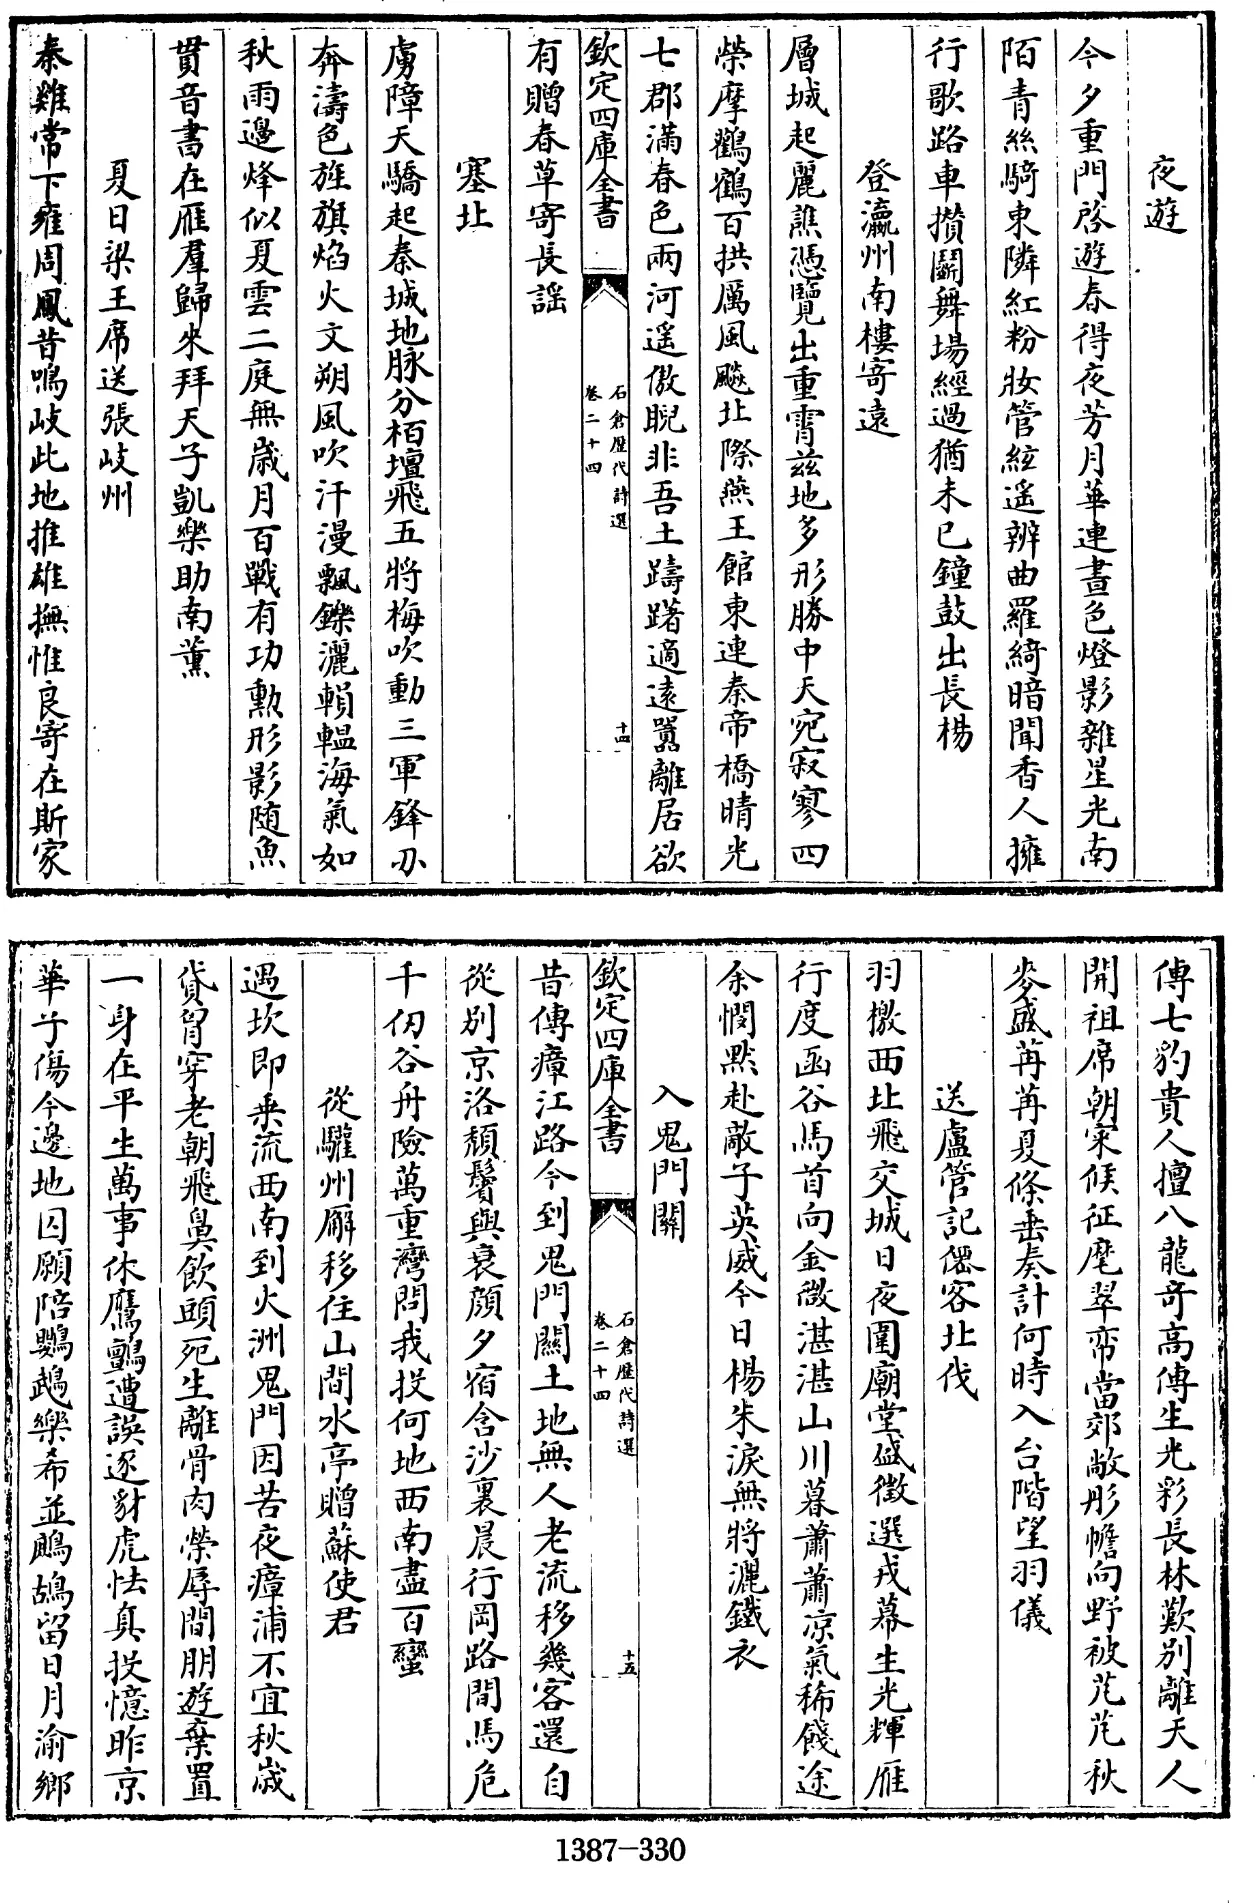 夜遊
今夕重門啓遊春得夜芳月華連晝色燈影雜星光南
陌青絲騎東隣紅粉妝管絃遥辨曲羅綺暗聞香人擁
行歌路車攢鬭舞場經過猶未已鐘鼓出長楊
登瀛州南樓寄遠
層城起麗譙憑覽出重霄兹地多形勝中天宛寂寥四
榮摩鸛鶴百拱厲風飇北際燕王館東連秦帝橋晴光
七郡滿春色兩河遥傲睨非吾土躊躇適遠囂離居欲
欽定四庫全書
石倉歷代詩選
卷二十四
十四
有贈春草寄長謡
塞北
虜障天驕起秦城地脉分栢壇飛五將梅吹動三軍鋒刃
奔濤色旌旗焰火文朔風吹汗漫飄鑠灑轒轀海氣如
秋雨邊烽似夏雲二庭無歲月百戰有功勲形影随魚
貫音書在雁羣歸來拜天子凱樂助南薰
夏日梁王席送張岐州
秦雞常下雍周鳳昔鳴岐此地推雄撫惟良寄在斯家
傳七豹貴人擅八龍竒高傅生光彩長林歎別離天人
開祖席朝寀候征麾翠帟當郊敞彤幨向野披芃芃秋
麥盛苒苒夏條垂奏計何時入台階望羽儀
送盧管記僊客北伐
羽檄西北飛交城日夜圍廟堂盛徵選戎幕生光輝雁
行度函谷馬首向金微湛湛山川暮蕭蕭凉氣稀餞途
余憫黙赴敵子英威今日楊朱淚無將灑鐵衣
入鬼門關
欽定四庫全書
石倉歷代詩選
卷二十四
十五
昔傳瘴江路今到鬼門關土地無人老流移幾客還自
從別京洛頽鬢與衰顔夕宿含沙裏晨行岡路間馬危
千仞谷舟險萬重灣問我投何地西南盡百蠻
從驩州廨移住山間水亭贈蘇使君
遇坎即乗流西南到火洲鬼門因苦夜瘴浦不宜秋歲
貸胷穿老朝飛鼻飲頭死生離骨肉榮辱間朋遊棄置
一身在平生萬事休鷹鸇遭誤逐豺虎怯真投憶昨京
華子傷今邊地囚願陪鸚鵡樂希並鷓鴣留日月渝鄉
1387-330